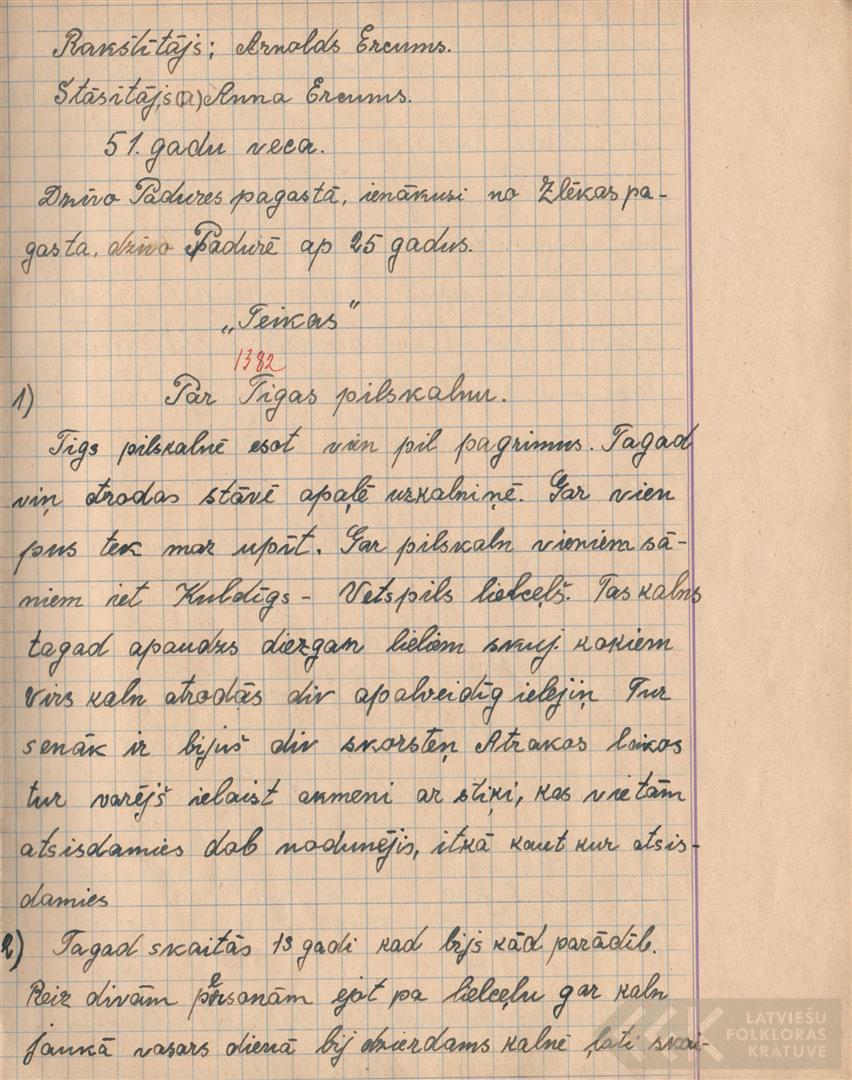 Rakstītājs; Arnolds Ercums.
Stāsītājs(a) Anna Ercums.
51. gadu veca.
Dzīvo Padures pagastā, ienākusi no Zlēkas pa-
gasta, dzīvo Padurē ap 25 gadus.
„Teikas”
1382
1) Par Tigas pilskalnu.
Tigs pilskalnē esot vien pil pagrimus. Tagad
viņ atrodas stāvē apaļē uzkalniņē. Gar vien
pus tek maz upīt. Gar pilskaln vieniem sā-
niem iet Kuldīgs - Vetspils lielceļš. Tas kalns
tagad apaudzs diezgan lieliem skuj kokiem
Virs kaln atrodās div apaļveidīg ielejiņ Tur
senāk ir bijuš div skorsteņ Atrakos laikos
tur varējš ielaist akmeni ar stiķi, kas vietām
atsisdamies dob nodunējis, itkā kaut kur atsis-
damies
2) Tagad skaitās 13 gadi kad bijs kād parādīb.
Reiz divām personām ejot pa lielceļu gar kaln
jaukā vasars dienā bij dzierdams kalnē ļoti skai-
LATVIEŠU
FOLKLORAS
KRĀTUVE